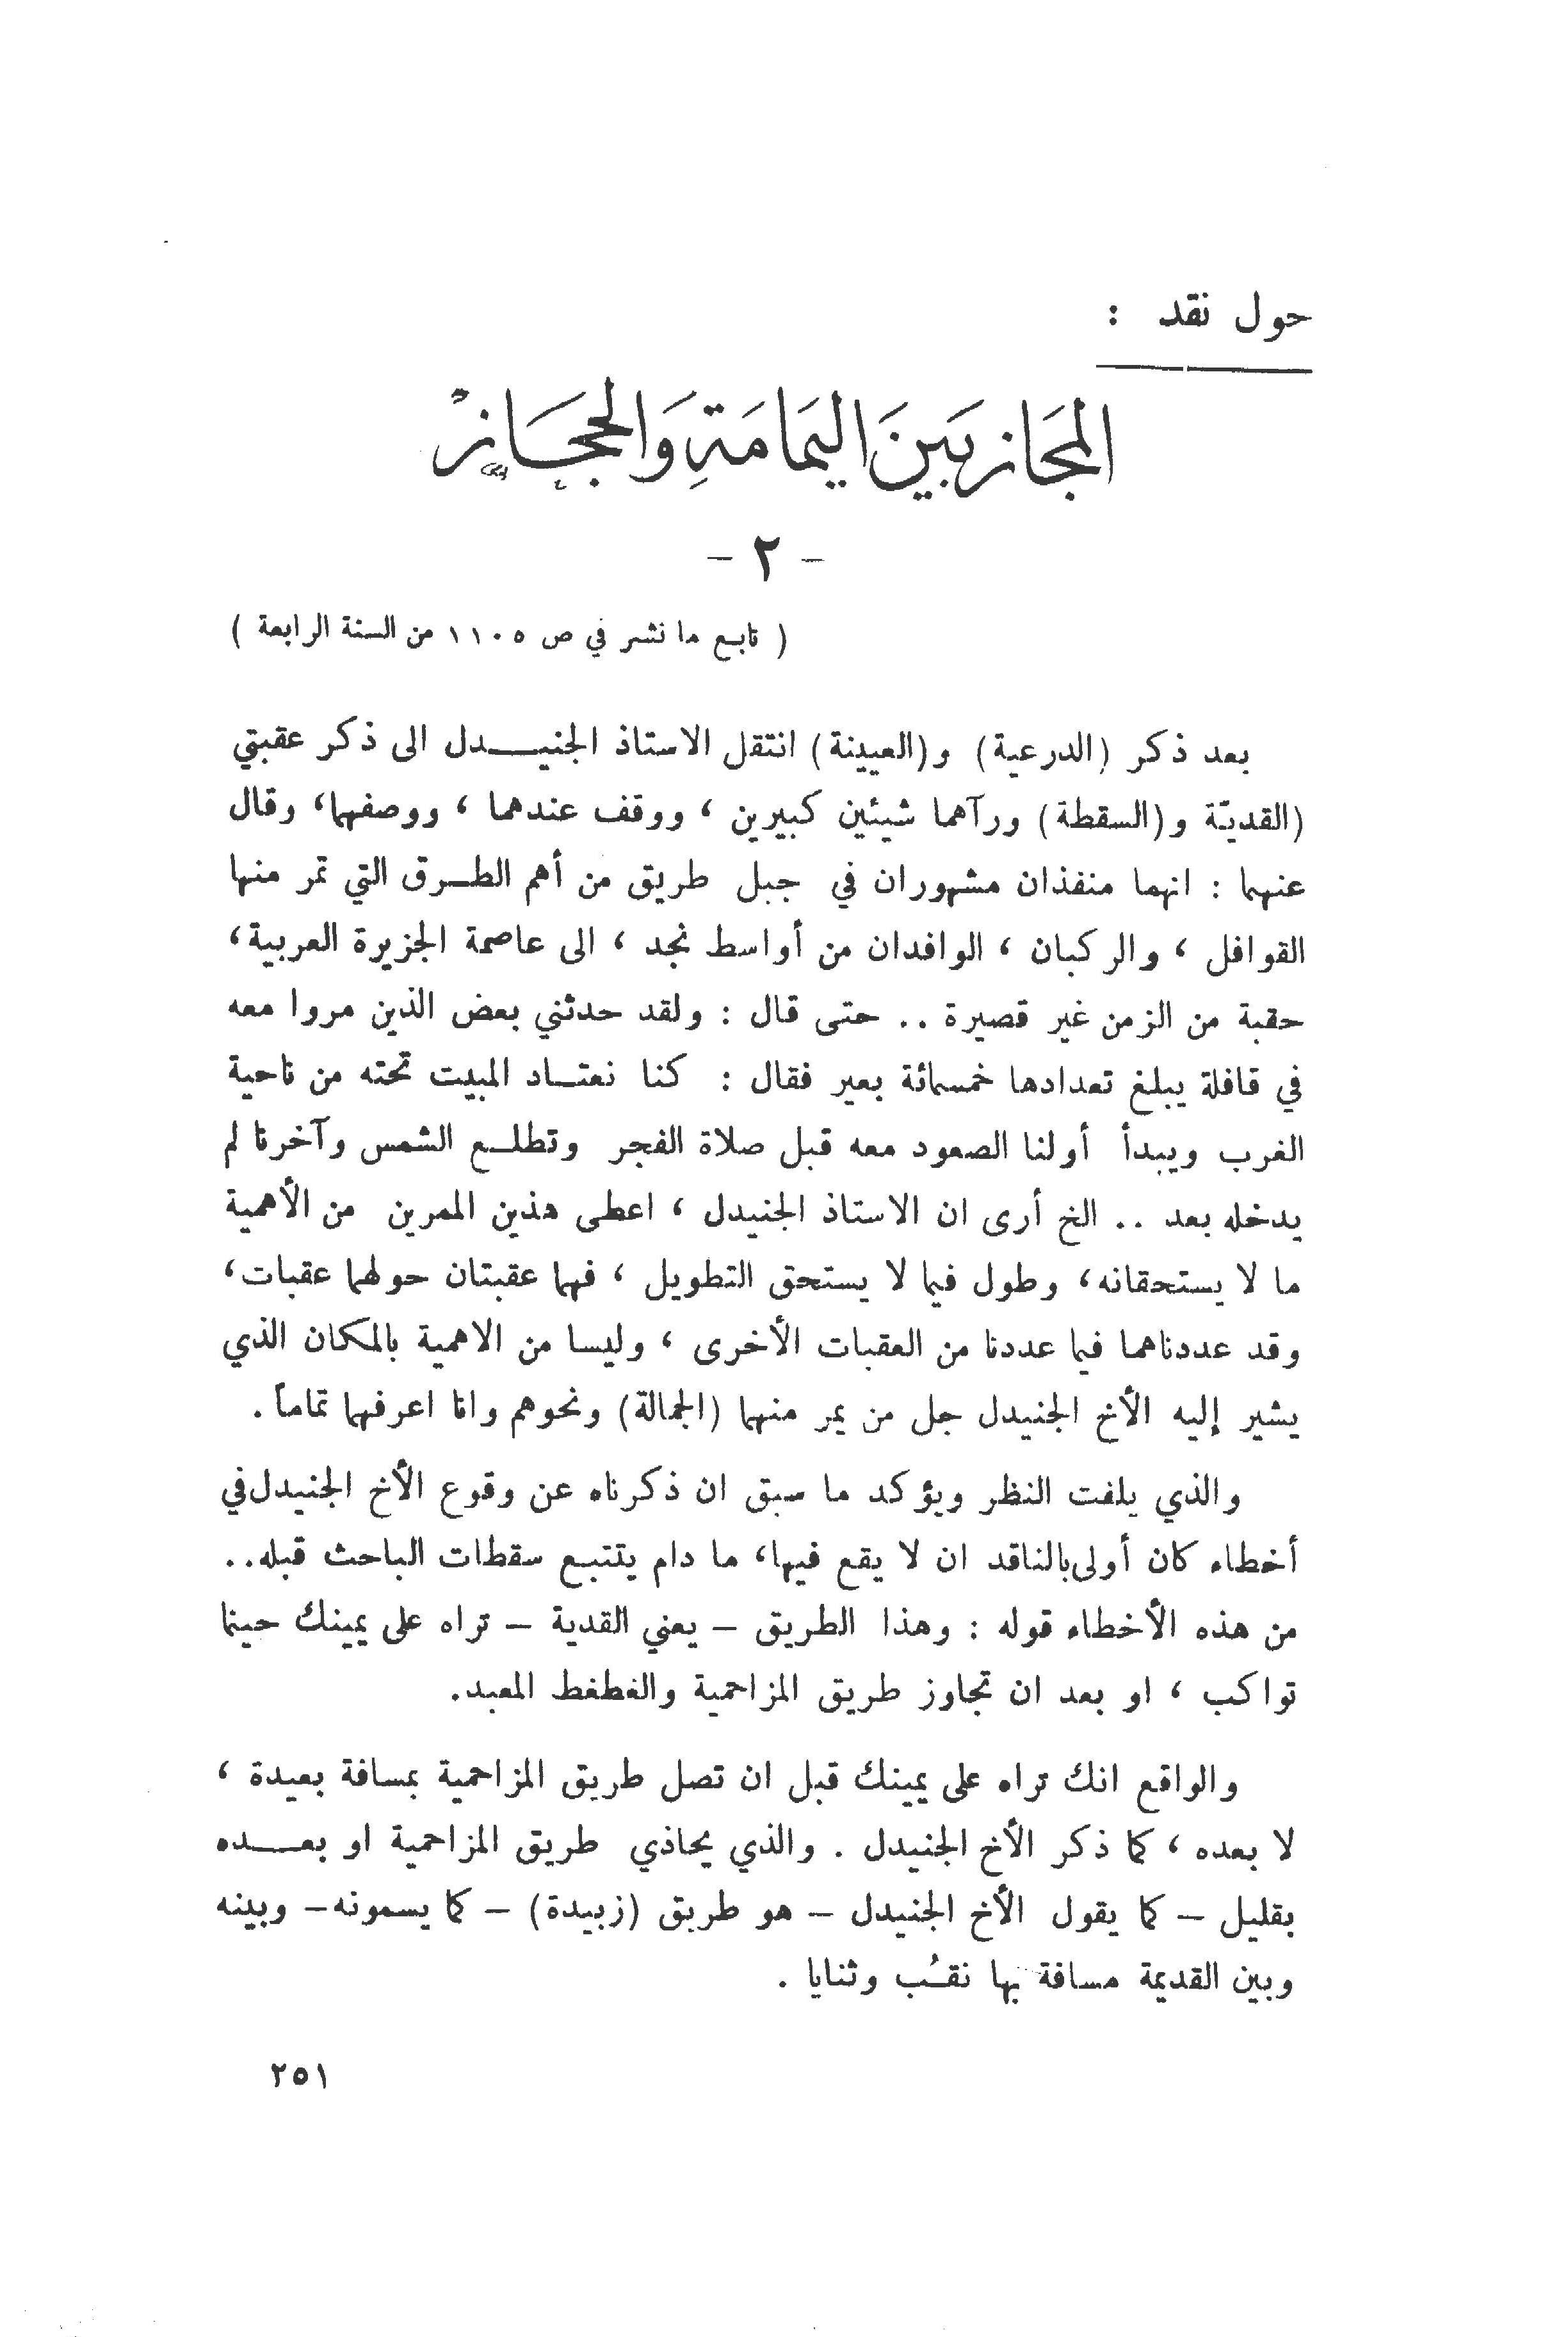 حول نقد :
المجَاز بَينَ اليمَامَةِ وَالحجَازْ
- ٢ -
( تابع ما نشر في ص ١١٠٥ من السنة الرابعة )
بعد ذكر (الدرعية) و(العيينة) انتقل الاستاذ الجنيدل الى ذكر عقبتي
(القديّة و(السقطة) ورآهما شيئين كبيرين ، ووقف عندهما ، ووصفهما، وقال
عنهما : انهما منفذان مشهوران في جبل طريق من أهم الطرق التي تمر منها
القوافل ، والركبان ، الوافدان من أواسط نجد ، الى عاصمة الجزيرة العربية،
حقبة من الزمن غير قصيرة .. حتى قال : ولقد حدثني بعض الذين مروا معه
في قافلة يبلغ تعدادها خمسمائة بعير فقال : كنا نعتاد المبيت تحته من ناحية
الغرب ويبدأ أولنا الصعود معه قبل صلاة الفجر وتطلع الشمس وآخرنا لم
يدخله بعد .. الخ أرى ان الاستاذ الجنيدل ، اعطى هذين الممرين من الأهمية
ما لا يستحقانه، وطول فيما لا يستحق التطويل ، فهما عقبتان حولهما عقبات،
وقد عددناهما فيما عددنا من العقبات الأخرى ، وليسا من الاهمية بالمكان الذي
يشير إليه الأخ الجنيدل جل من يمر منهما (الجمالة) ونحوهم وانا اعرفهما تماماً .
والذي يلفت النظر ويؤكد ما سبق ان ذكرناه عن وقوع الأخ الجنيدل في
أخطاء كان أولى بالناقد ان لا يقع فيها، ما دام يتتبع سقطات الباحث قبله..
من هذه الأخطاء قوله : وهذا الطريق – يعني القدية – تراه على يمينك حينما
تواكب ، او بعد ان تجاوز طريق المزاحمية والغطغط المعبد.
والواقع انك تراه على يمينك قبل ان تصل طريق المزاحمية بمسافة بعيدة ،
لا بعده ، كما ذكر الأخ الجنيدل . والذي يحاذي طريق المزاحمية او بعده
بقليل – كما يقول الأخ الجنيدل – هو طريق (زبيدة) – كما يسمونه– وبينه
وبين القديمة مسافة بها نقُب وثنايا .
٢٥١